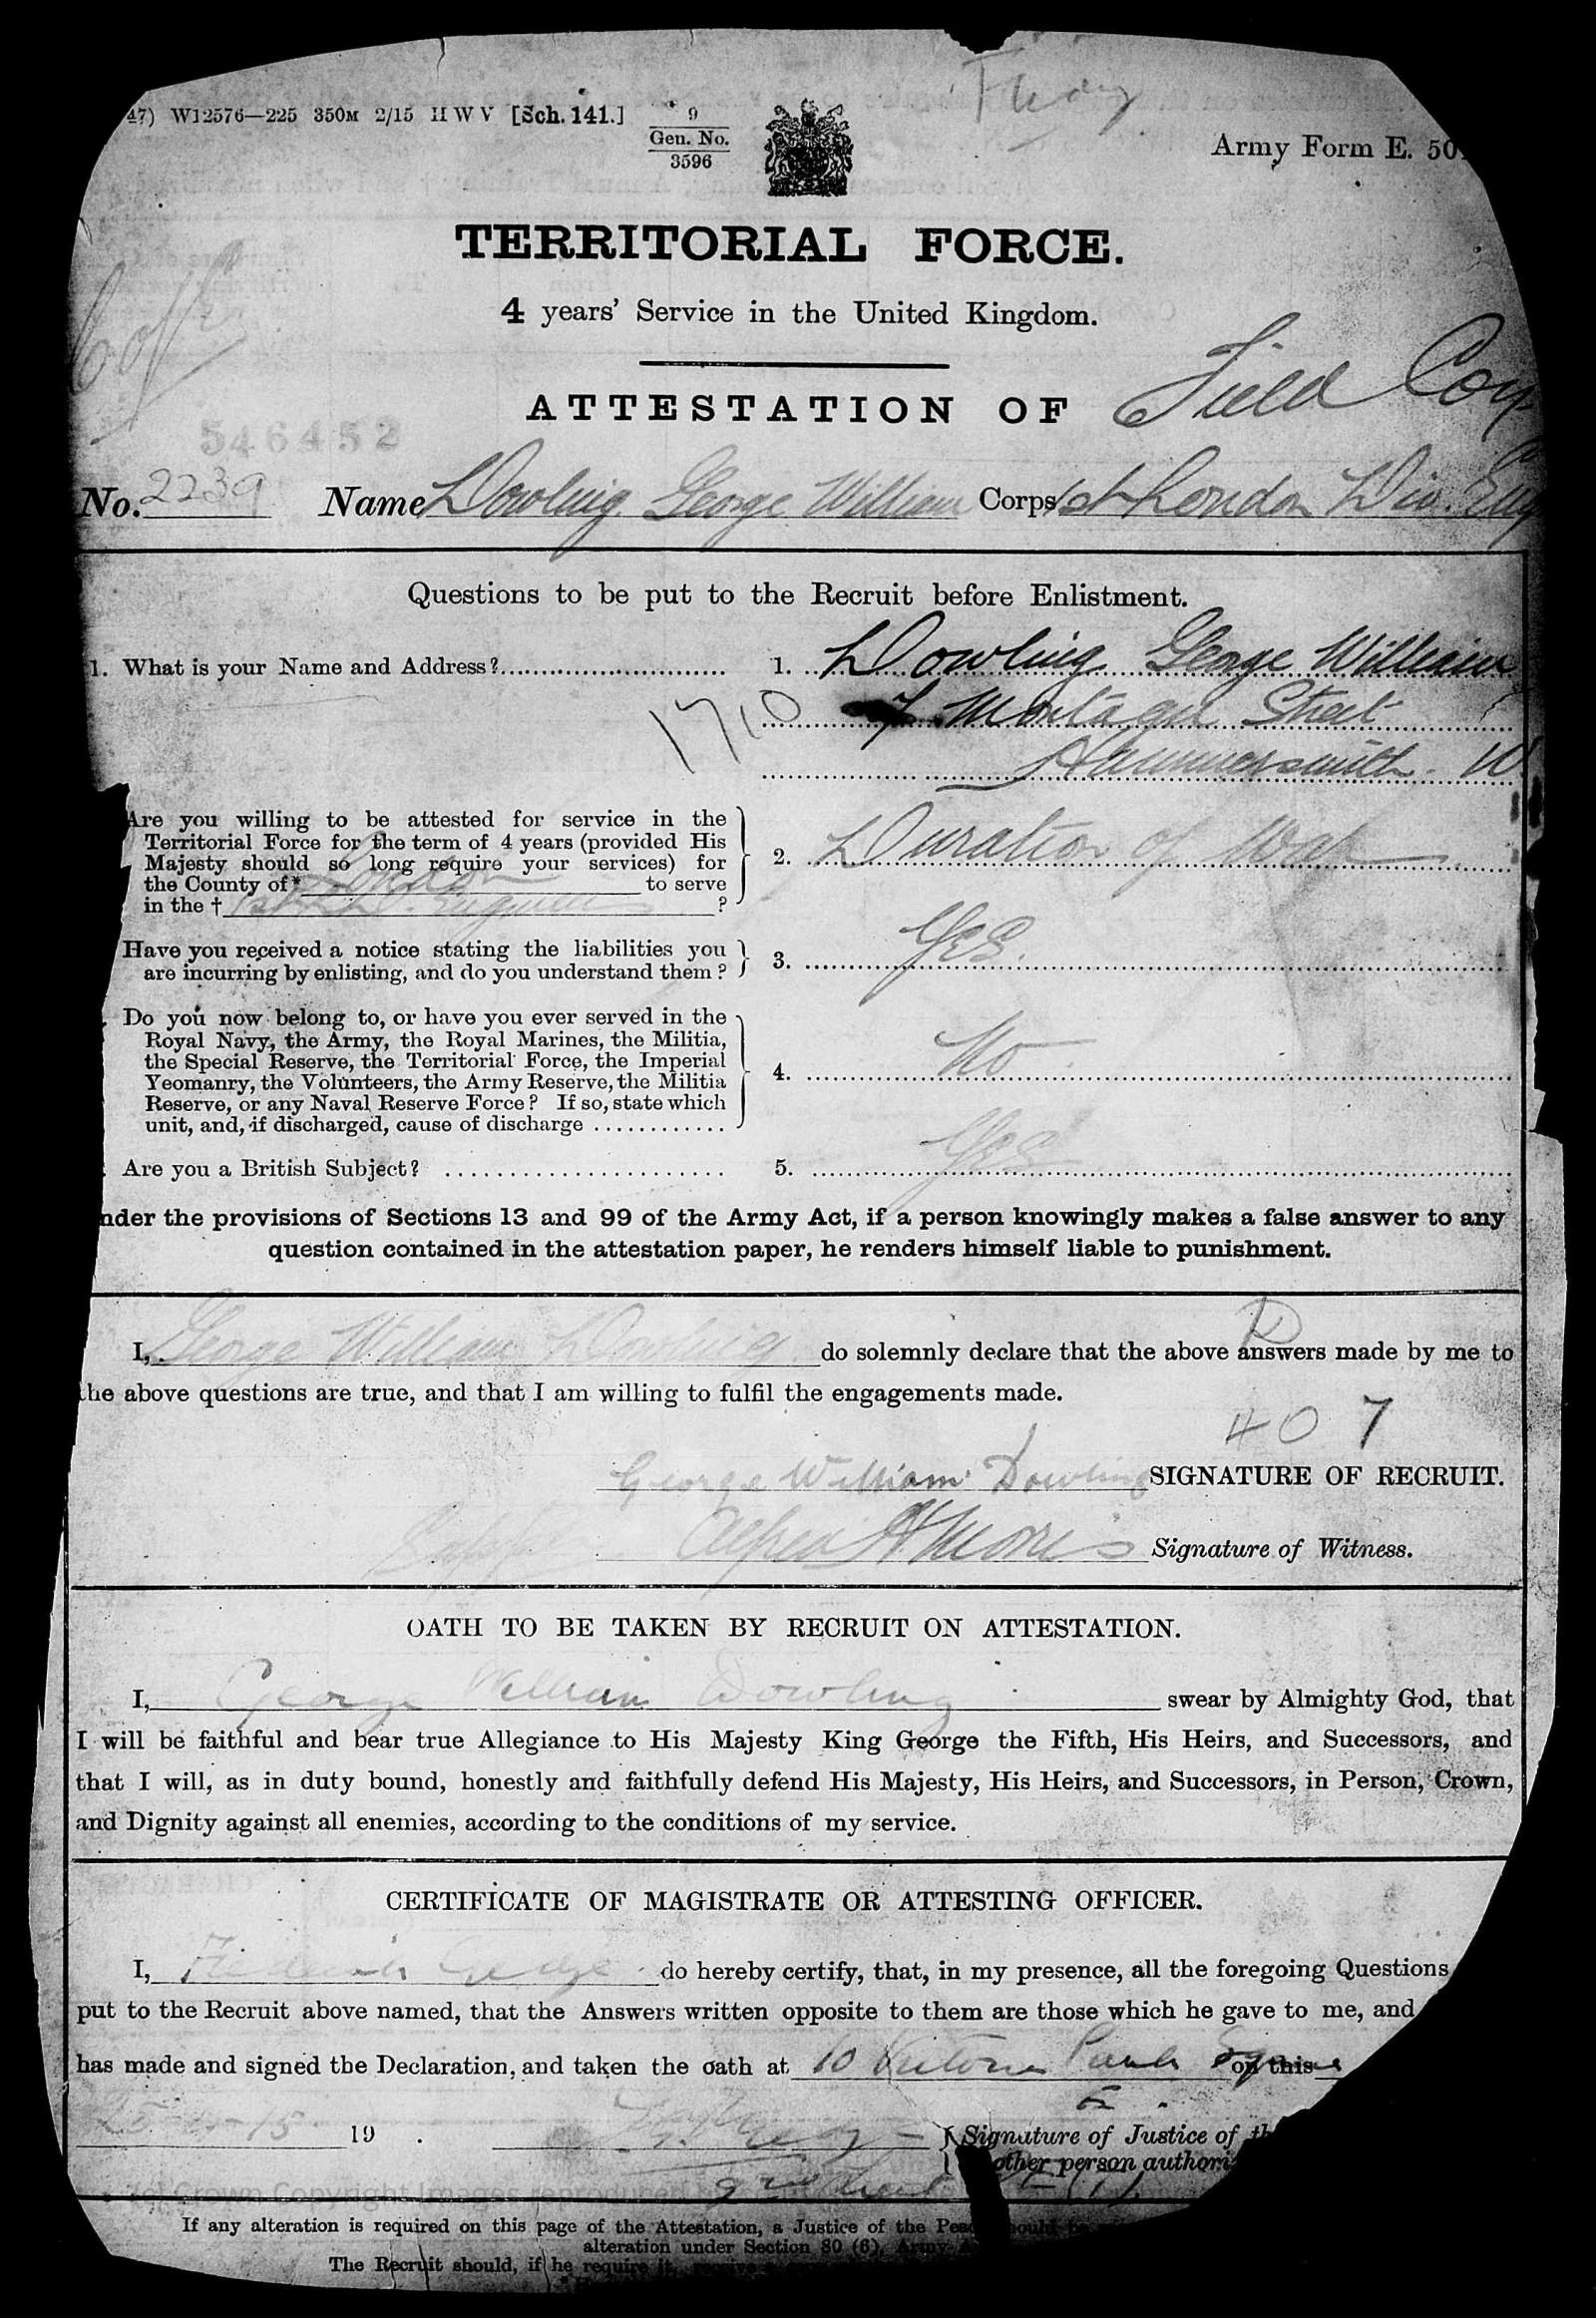 47) W12576—225 350M 2/15 H W V [Sch. 141.]
9
Gen. No.
3596
Army Form E. 50
TERRITORIAL FORCE.
4 years' Service in the United Kingdom.
ATTESTATION OF Field Coy
546452
No. 2239 Name Dowling George William Corps 1st London Div. Eng
Questions to be put to the Recruit before Enlistment.
1. What is your Name and Address? 1. Dowling George William
1710 7 Montague Street
Hammersmith. W
Are you willing to be attested for service in the
Territorial Force for the term of 4 years (provided His
Majesty should so long require your services) for
the County of* London to serve
in the † 1st Engineers ?
2. Duration of War
Have you received a notice stating the liabilities you
are incurring by enlisting, and do you understand them ?
3. Yes.
Do you now belong to, or have you ever served in the
Royal Navy, the Army, the Royal Marines, the Militia,
the Special Reserve, the Territorial Force, the Imperial
Yeomanry, the Volunteers, the Army Reserve, the Militia
Reserve, or any Naval Reserve Force? If so, state which
unit, and, if discharged, cause of discharge
4. No
Are you a British Subject? 5. Yes
nder the provisions of Sections 13 and 99 of the Army Act, if a person knowingly makes a false answer to any
question contained in the attestation paper, he renders himself liable to punishment.
D
I, George William Dowling do solemnly declare that the above answers made by me to
the above questions are true, and that I am willing to fulfil the engagements made.
40 7
George William Dowling SIGNATURE OF RECRUIT.
Alfred H Morris Signature of Witness.
OATH TO BE TAKEN BY RECRUIT ON ATTESTATION.
I, George William Dowling swear by Almighty God, that
I will be faithful and bear true Allegiance to His Majesty King George the Fifth, His Heirs, and Successors, and
that I will, as in duty bound, honestly and faithfully defend His Majesty, His Heirs, and Successors, in Person, Crown,
and Dignity against all enemies, according to the conditions of my service.
CERTIFICATE OF MAGISTRATE OR ATTESTING OFFICER.
I, Frederick George do hereby certify, that, in my presence, all the foregoing Questions
put to the Recruit above named, that the Answers written opposite to them are those which he gave to me, and
has made and signed the Declaration, and taken the oath at 10 Victoria Park Square on this
E
19 .
Signature of Justice of th
other person authori
2nd Lieut
Crown Copyright Images reproduced
If any alteration is required on this page of the Attestation, a Justice of the Peace should be
alteration under Section 80 (6), Army A
The Recruit should, if he require it, receive